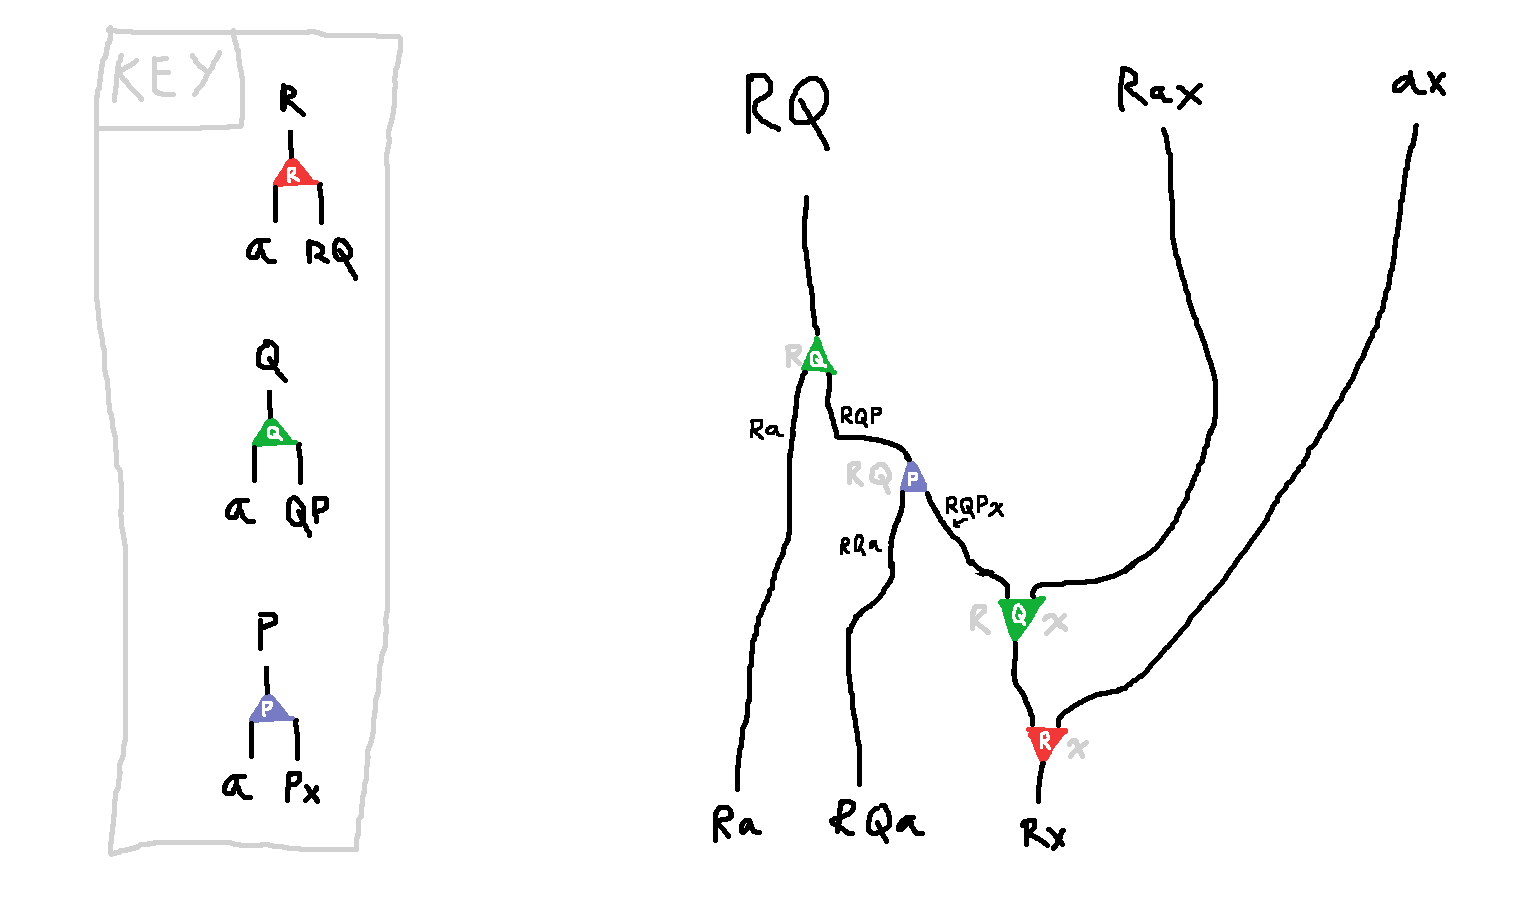 KEY
R
R
a RQ
Q
Q
a QP
P
P
a Px
RQ
Rax
ax
R Q
Ra
RQP
RQ P
RQPx
RQa
R Q x
R x
Ra
RQa
Rx